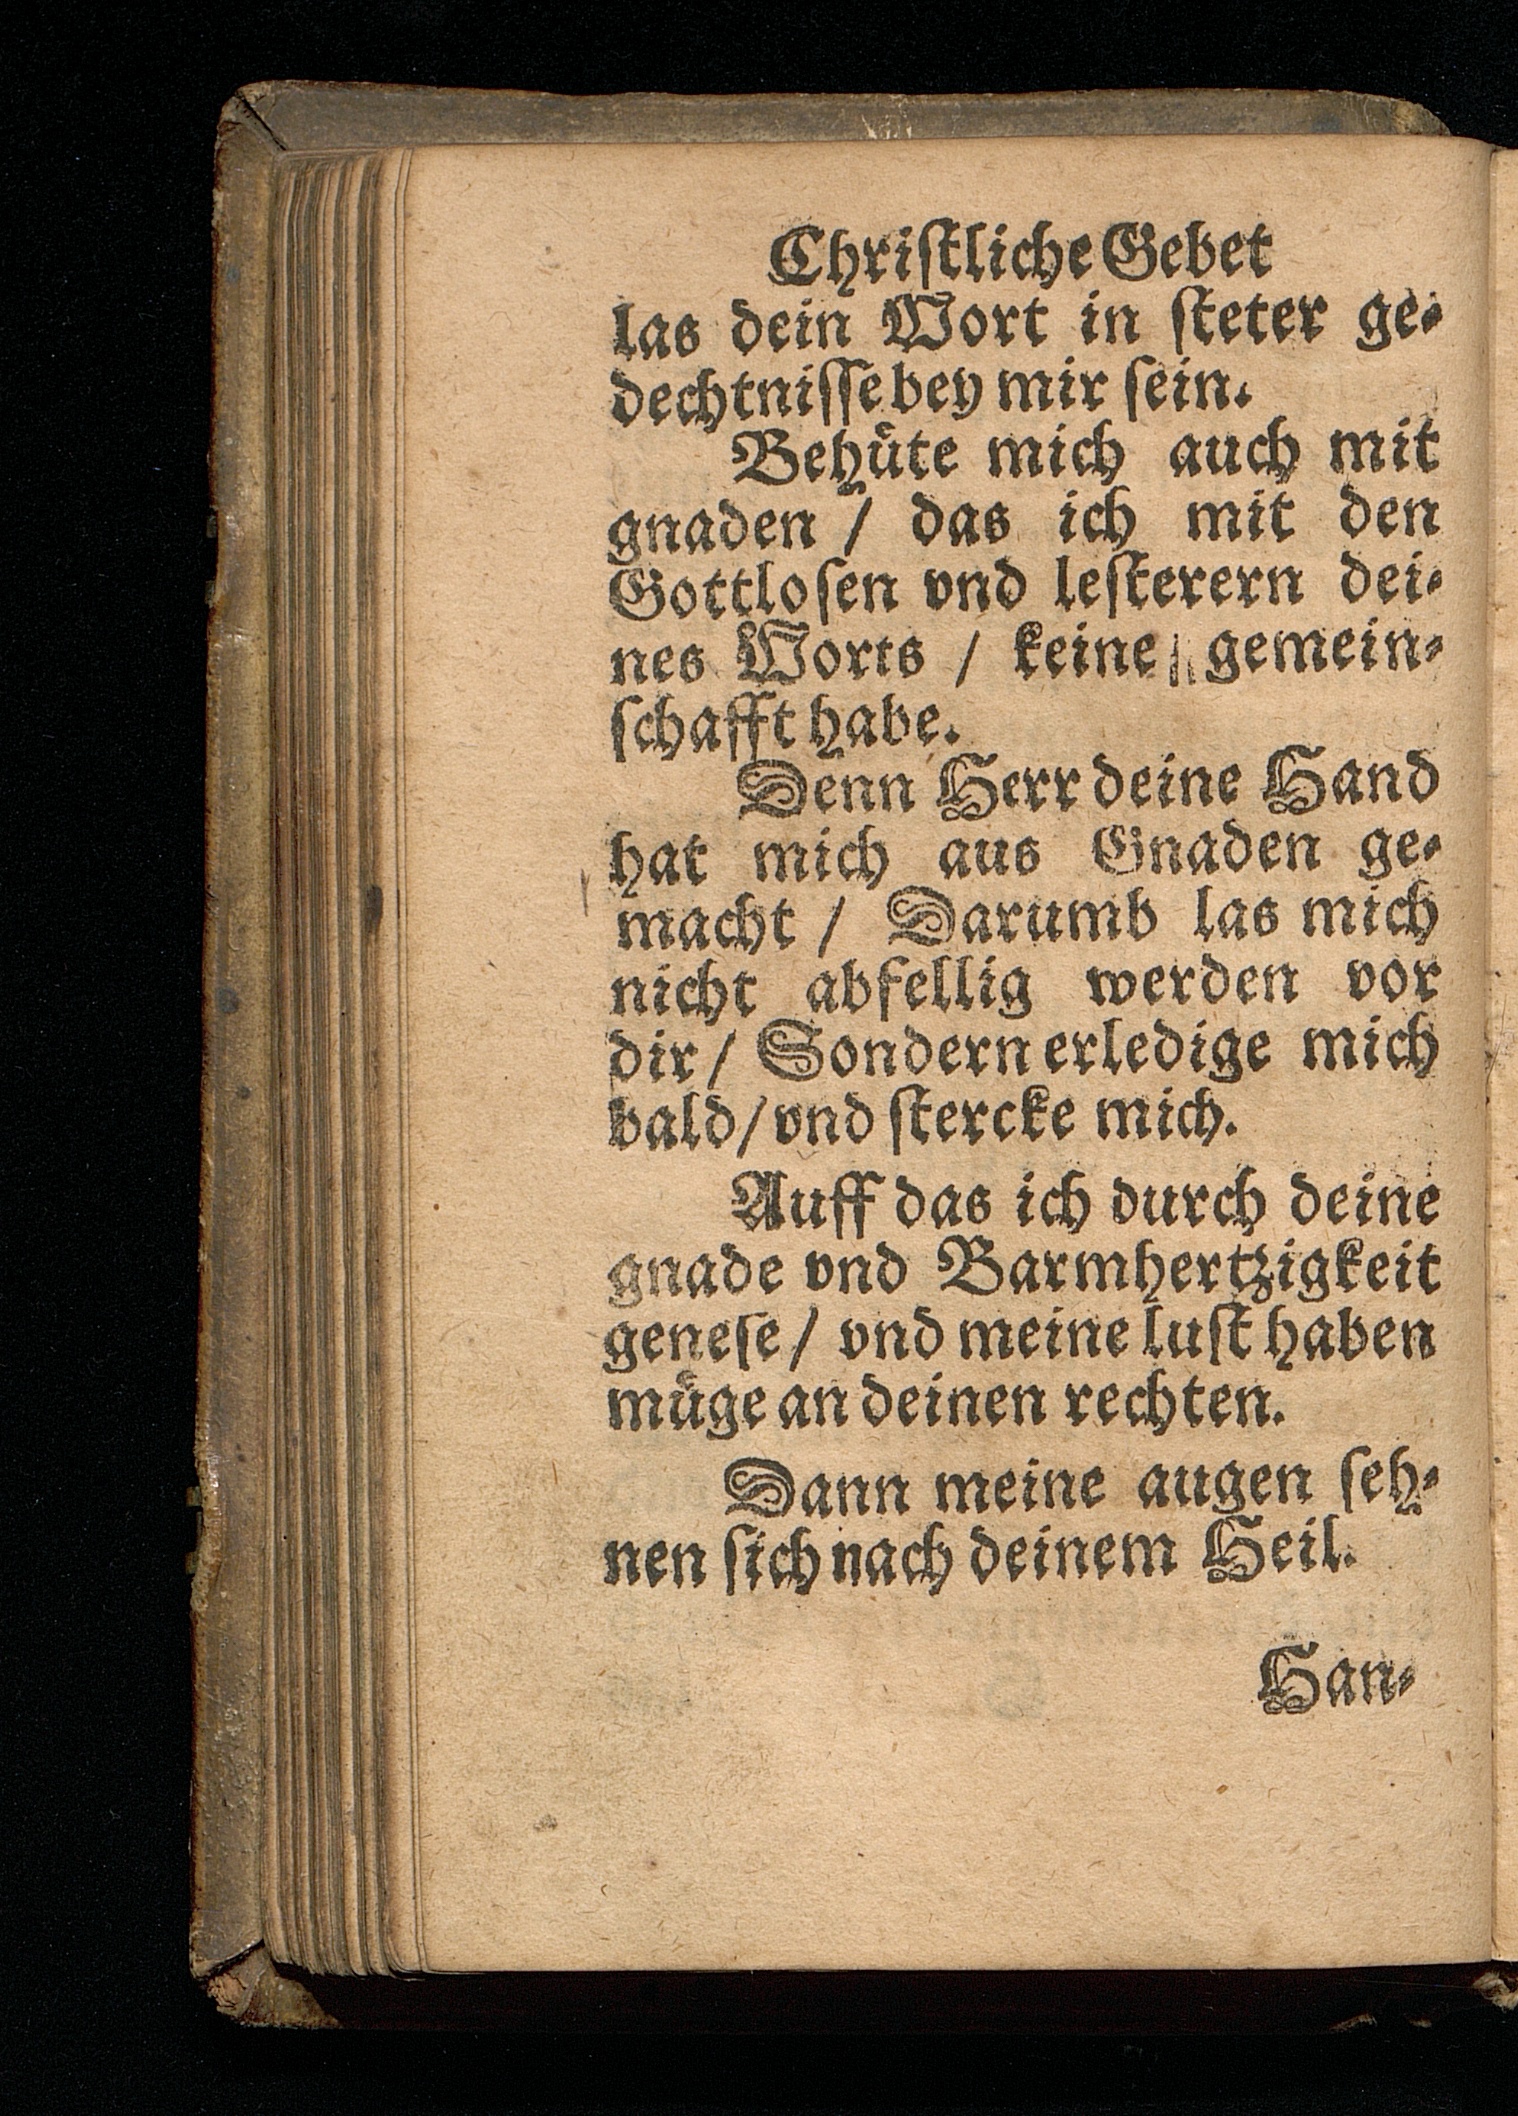 Chriſtliche Gebet
las dein Wort in ſteter ge⸗
dechtniſſe bey mir ſein.
Behuͤte mich auch mit
gnaden / das ich mit den
Gottloſen vnd leſterern dei⸗
nes Worts / keine gemein⸗
ſchafft habe.
Denn Herr deine Hand
hat mich aus Gnaden ge⸗
macht / Darumb las mich
nicht abfellig werden vor
dir / Sondern erledige mich
bald / vnd ſtercke mich.
Auff das ich durch deine
gnade vnd Barmhertzigkeit
geneſe / vnd meine luſt haben
muͤge an deinen rechten.
Dann meine augen ſeh⸗
nen ſich nach deinem Heil.
Han⸗